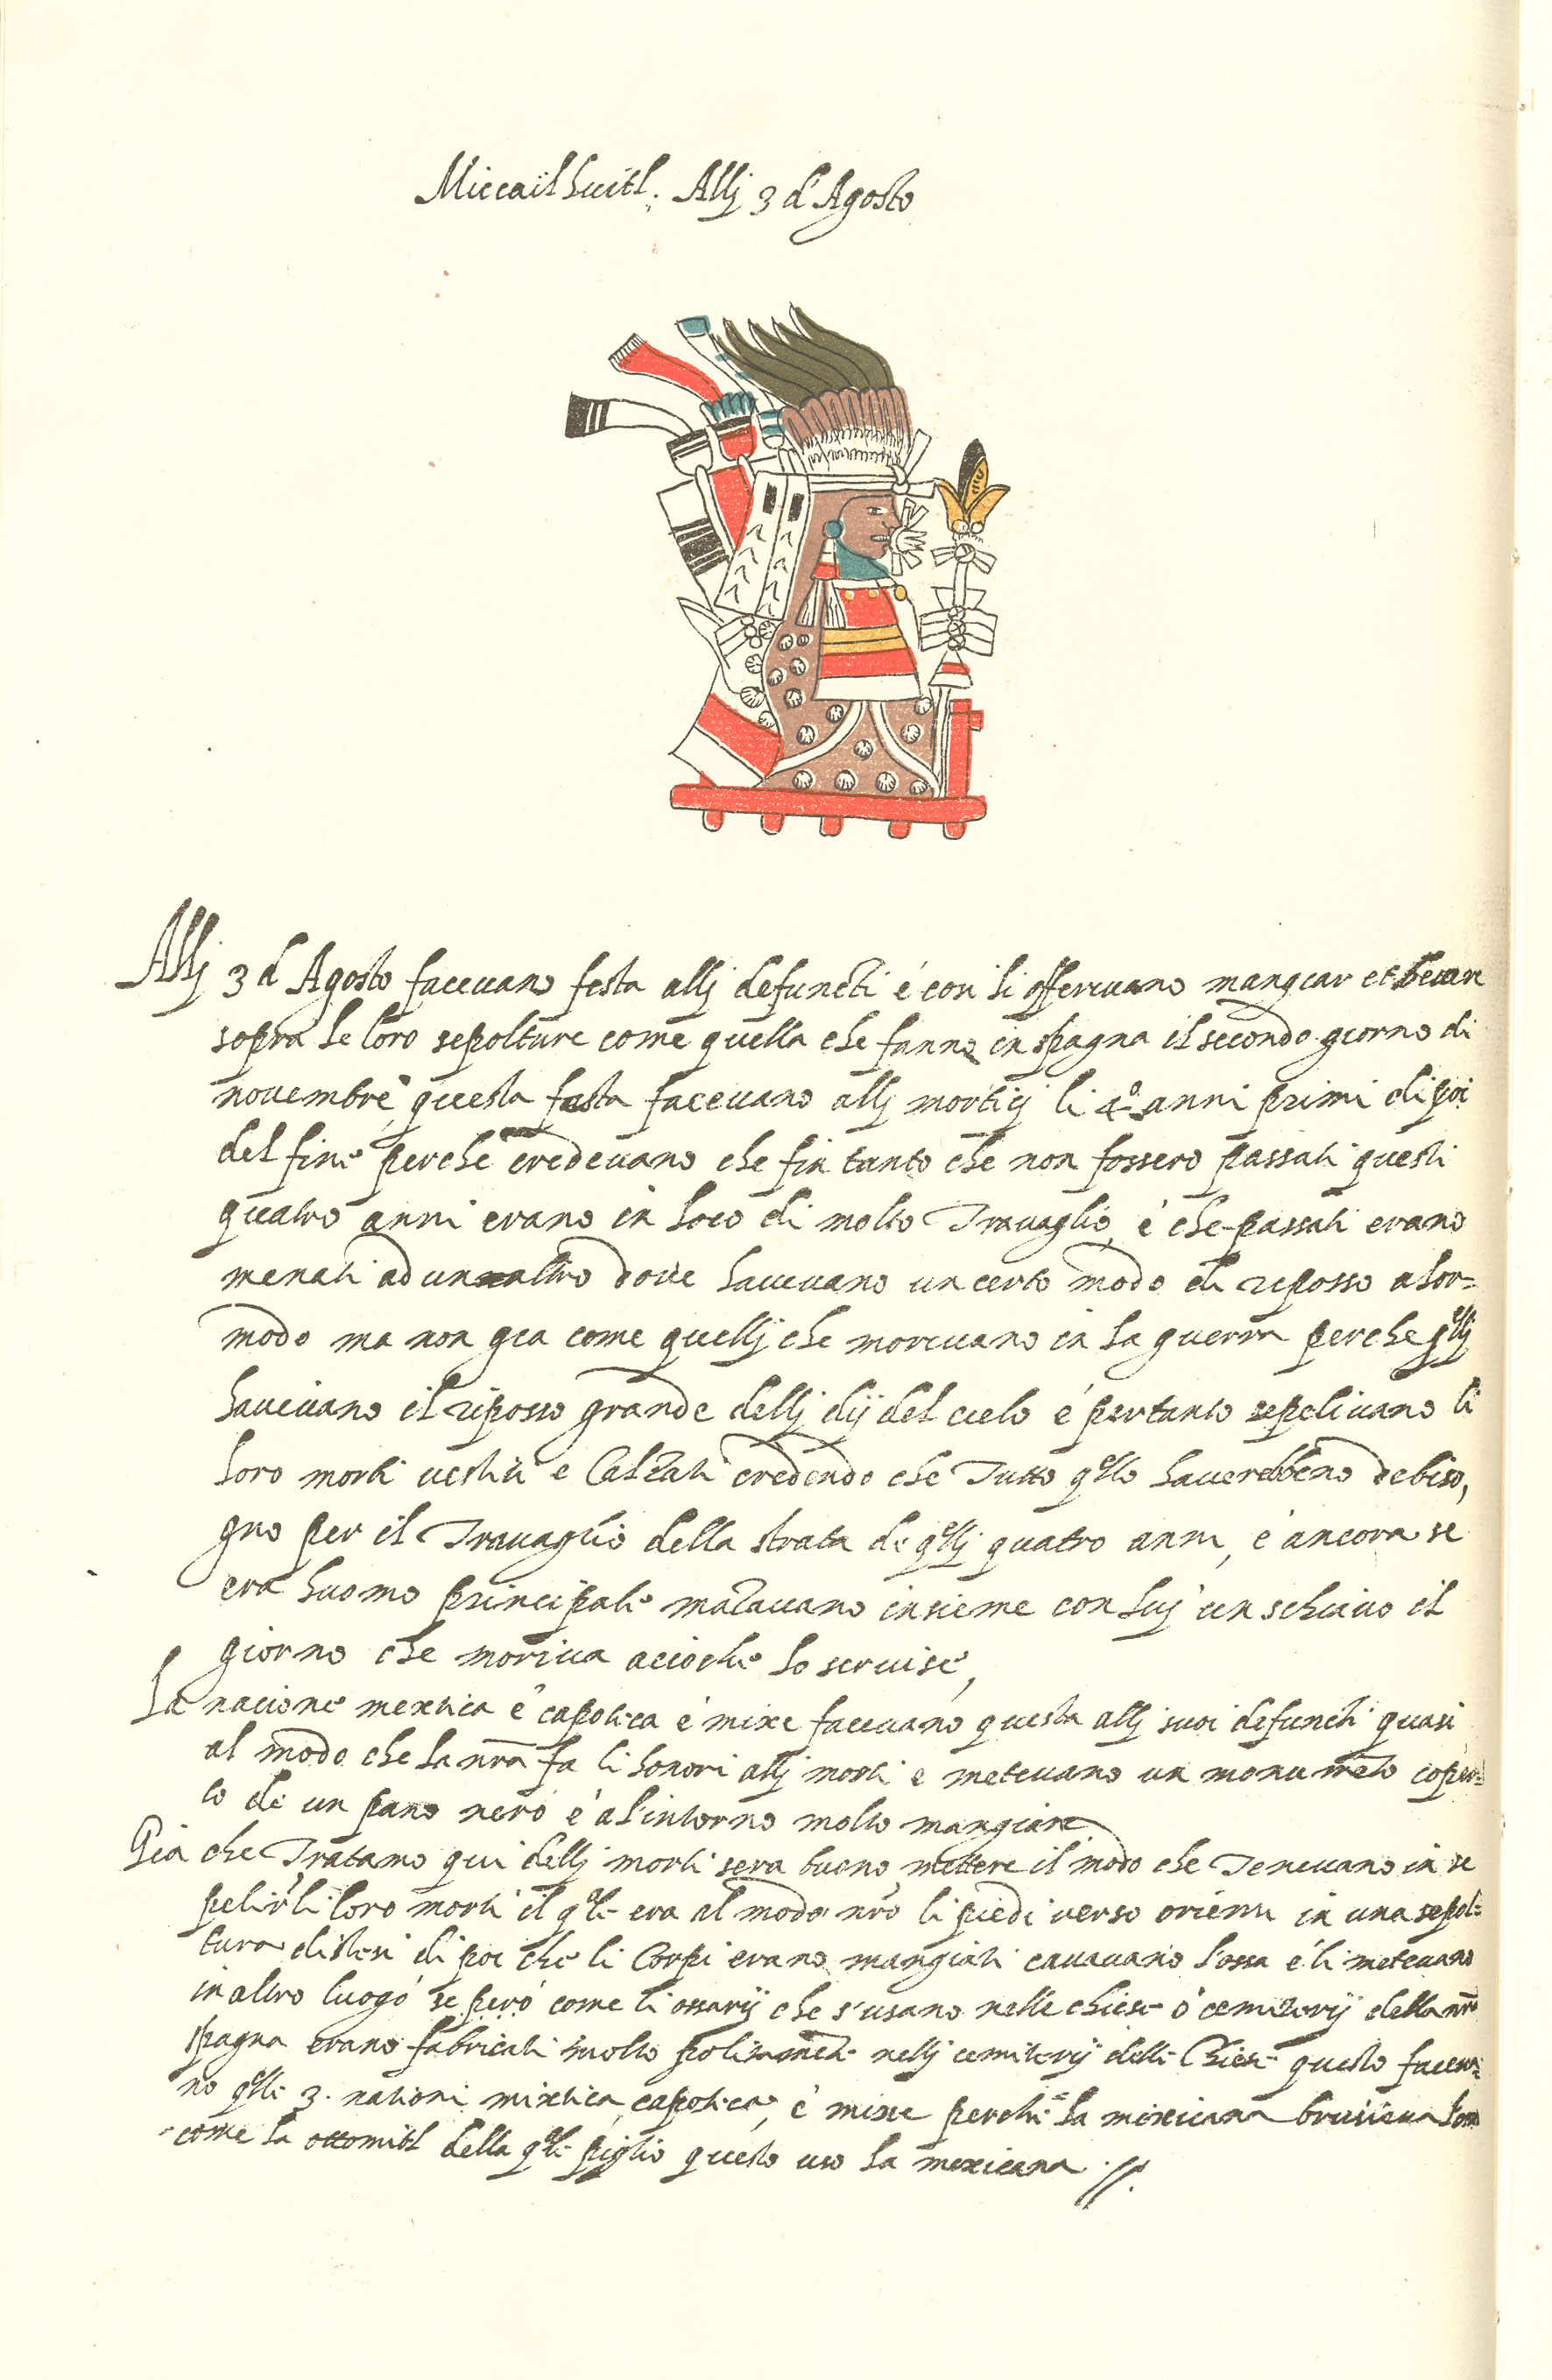 Miccailhuitl. Allj 3 d Agosto
Allj 3 d Agosto faceuano festa allj defuncti é con li offereuano mangiar et bevere
sopra le loro sepolture come quella che fanno in spagna il secondo giorno di
novembre questa festa faceuano allj morti li 4º anni primi di poi
del fine perche credeuano che fin tanto che non fossero passati questi
quatro anni erano in loco di molto Travaglio, é che passati erano
menati ad un altro dove haveuano un certo modo di riposso a lor=
modo ma non gia come quellj che moreuano in la guerra perche qllj
haveuano il riposso grande dellj dij del cielo é pertanto sepeliuano li
loro morti vestiti e Calzati credendo che Tutto qllo haverebbeno debiso,
gno per il Travaglio della strata de qllj quatro anni, é ancora se
era huomo principale matauano insieme con luj un schiavo il
giorno che moriva acioche lo servise,
La natione mextica é capoteca é mixe faceuano questa allj suoi defuncti quasi
al modo che la nra fa li honori allj morti e meteuano un monumeto coper=
to de un pano nero é al'intorno molto mangiare
Gia che Tratamo qui dellj morti sera buono mettere il modo che Teneuano in se
pelir li loro morti il qle era al modo nro li piedi verso oriente in una sepol=
tura distesi di poi che li Corpi erano mangiati cavavano l'ossa é li meteuano
in altro luogo se però come li ossarij che s'usano nelle chiese ó cemiterij della nra
spagna erano fabricati molto politamete nellj cemiterij delle Chiese questo faceva=
no qlle 3. nationi mixtica, capoteca, é mixe perche la mexicana brusiava
come la ottomitl della qle piglio questo uso la mexicana .//.